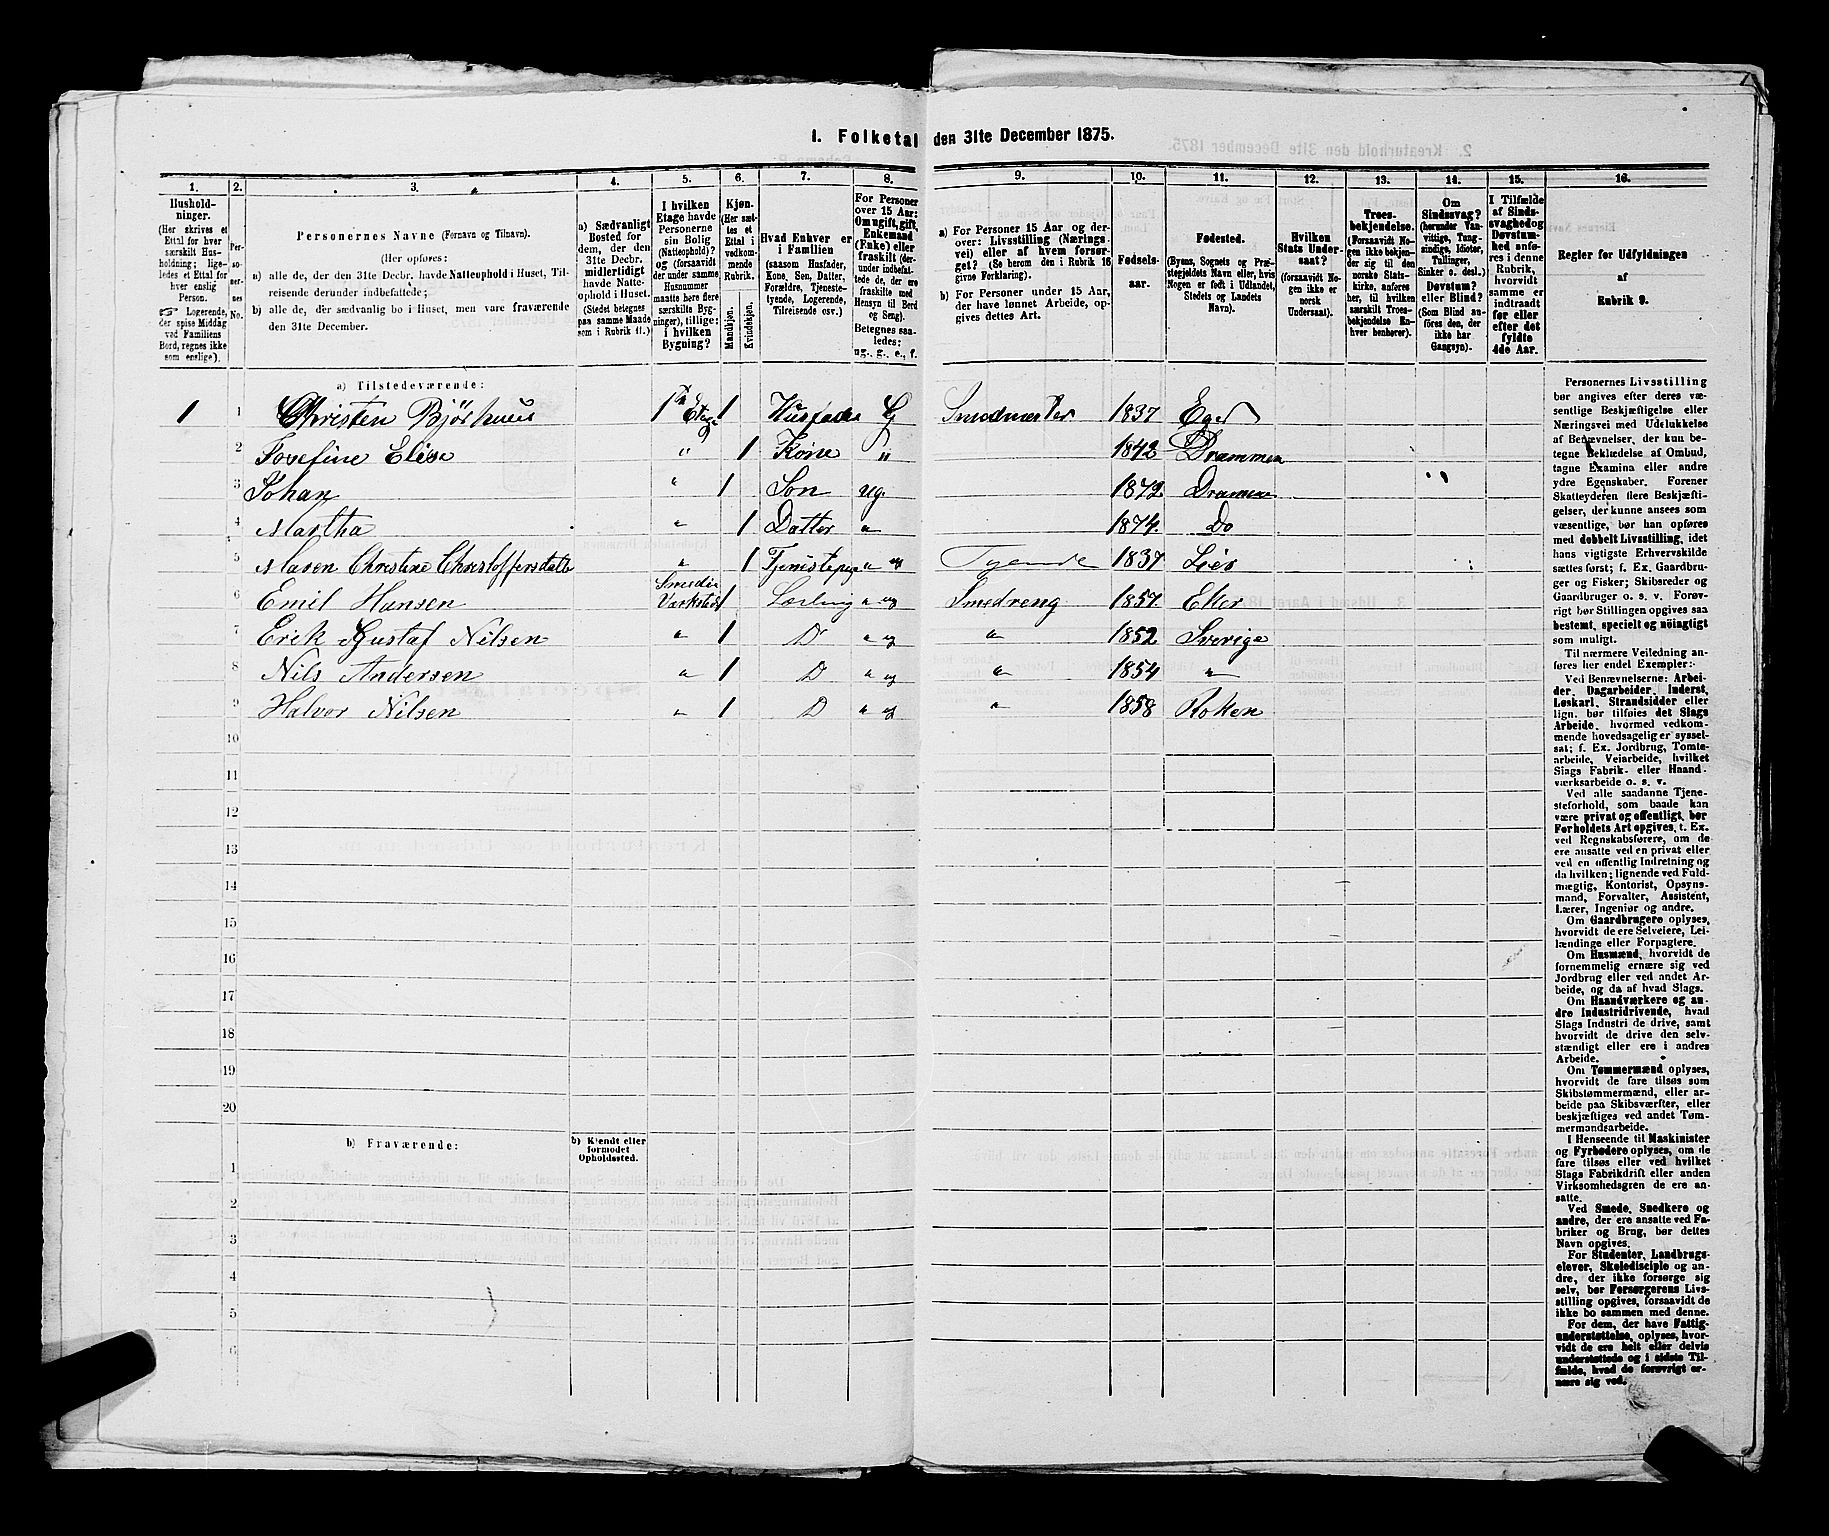 1. Folketal den 31te December 1875.
1. 2. 3. 4. 5. 6. 7. 8. 9. 10. 11. 12. 13. 14. 15. 16.
Husholdninger.
(Her skrives et Ettal for hver særskilt Husholdning; ligeledes et Ettal for hver enslig Person.
Logerende, der spise Middag ved Familiens Bord, regnes ikke som enslige).
Personernes No.
Personernes Navne (Fornavn og Tilnavn).
(Her opføres:
a) alle de, der den 31te Decbr. havde Natteophold i Huset, Tilreisende derunder indbefattede;
b) alle de, der sædvanlig bo i Huset, men vare fraværende den 31te December.
a) Sædvanligt Bosted for dem, der den 31te Decbr. midlertidigt havde Natteophold i Huset. (Stedet betegnes paa samme Maade som i Rubrik 11.)
I hvilken Etage havde Personerne sin Bolig (Natteophold)? og (forsaavidt der under samme Husnummer maatte høre flere særskilte Bygninger), tillige: i hvilken Bygning?
Kjøn. (Her sættes et Ettal i vedkommende Rubrik.
Mandkjøn. Kvindekjøn.
Hvad Enhver er i Familien
(saasom Husfader, Kone, Søn, Datter, Forældre, Tjenestetyende, Logerende, Tilreisende osv.)
For Personer over 15 Aar: Om ugift, gift, Enkemand (Enke) eller fraskilt (derunder indbefattede de, der ere fraskilte med Hensyn til Bord og Seng).
Betegnes saaledes: ug., g., e., f.
a) For Personer 15 Aar og derover: Livsstilling (Næringsvei) eller af hvem forsørget? (Se herom den i Rubrik 16 givne Forklaring).
b) For Personer under 15 Aar, der have lønnet Arbeide, opgives dettes Art.
Fødselsaar.
Fødested.
(Byens, Sognets og Præstegjeldets Navn eller, hvis Nogen er født i Udlandet, Stedets og Landets Navn).
Hvilken Stats Undersaat?
(forsaavidt Nogen ikke er norsk Undersaat).
Troesbekjendelse.
(Forsaavidt Nogen ikke bekjender sig til den norske Statskirke, anføres her, til hvilken særskilt Troesbekjendelse Enhver henhører).
Om Sindssvag? (herunder Vanvittige, Tungsindige, Idioter, Tullinger, Sinker o. desl.) Døvstum? eller Blind? (Som Blind anføres den, der ikke har Gangsyn).
I Tilfælde af Sindssvaghed og Døvstumhed anføres i denne Rubrik, hvorvidt samme er indtraadt før eller efter det fyldte 4de Aar.
Regler for Udfyldningen af Rubrik 9.
a) Tilstedeværende:
1 1 Christen Bjørhuus 1te Etage 1 Husfader G Smedmester 1837 Eger
2 Josefine Elise " 1 Kone " 1842 Drammen
3 Johan " 1 Søn ug. 1872 Drammen
4 Martha " 1 Datter " 1874 Do
5 Maren Christine Christoffersdatte " 1 Tjenistepige " ug Tyende 1837 Lier
6 Emil Hansen Smedie Værksted 1 Lærling " ug Smedreng 1857 Eker
7 Erik Gustaf Nilsen " 1 D " ug " 1852 Sverige
8 Nils Andersen " 1 D " ug " 1854 "
9 Halvor Nilsen " 1 D " ug " 1858 Røken
10
11
12
13
14
15
16
17
18
19
20
b) Fraværende: b) Kjendt eller formodet Opholdssted.
1
2
3
4
5
6
Personernes Livsstilling
bør angives efter deres væ-
sentlige Beskjæftigelse eller
Næringsvei med Udelukkelse
af Benævnelser, der kun be-
tegne Beklædelse af Ombud,
tagne Examina eller andre
ydre Egenskaber. Forener
Skatteyderen flere Beskjæfti-
gelser, der kunne ansees som
væsentlige, bør han opføres
med dobbelt Livsstilling, idet
hans vigtigste Erhvervskilde
sættes først; f. Ex. Gaardbru-
ger og Fisker; Skibsreder og
Gaardbruger o. s. v. Forøv-
rigt bør Stillingen opgives saa
bestemt, specielt og nöiagtigt
som muligt.
Til nærmere Veiledning an-
føres her endel Exempler:
Ved Benævnelserne: Arbei-
der, Dagarbeider, Inderst,
Løskarl, Strandsidder eller
lign. bør tilføies det Slags
Arbeide, hvormed vedkom-
mende hovedsagelig er syssel-
sat; f. Ex. Jordbrug, Tomte-
arbeide, Veiarbeide, hvilket
Slags Fabrik- eller Haand-
værksarbeide o. s. v.
Ved alle saadanne Tjene-
steforhold, som baade kan
være privat og offentligt, bør
Forholdets Art opgives, t. Ex.
ved Regnskabsførere, om de
ere ansatte ved en privat eller
ved en offentlig Indretning og
da hvilken; lignende ved Fuld-
mægtig, Kontorist, Opsyns-
mand, Forvalter, Assistent,
Lærer, Ingeniør og andre.
Om Gaardbrugere oplyses,
hvorvidt de ere Selveiere, Lei-
lændinge eller Forpagtere.
Om Husmænd, hvorvidt de
fornemmelig ernære sig ved
Jordbrug eller ved andet Ar-
beide, og da af hvad Slags.
Om Haandværkere og an-
dre Industridrivende, hvad
Slags Industri de drive, samt
hvorvidt de drive den selv-
stændigt eller ere i andres
Arbeide.
Om Tømmermænd oplyses,
hvorvidt de fare tilsøs som
Skibstømmermænd, eller ar-
beide paa Skibsværfter, eller
beskjæftiges ved andet Tøm-
mermandsarbeide.
I Henseende til Maskinister
og Fyrbødere oplyses, om de
fare tilsøs eller ved hvilket
Slags Fabrikdrift eller anden
Virksomhedsgren de ere an-
satte.
Ved Smede, Snedkere og
andre, der ere ansatte ved Fa-
briker og Brug, bør dettes
Navn opgives.
For Studenter, Landbrugs-
elever, Skoledisciple og an-
dre, der ikke forsørge sig
selv, bør Forsørgerens Livs-
stilling opgives, forsaavidt de
ikke bo sammen med denne.
For dem, der have Fattig-
understøttelse, oplyses, hvor-
vidt de ere helt eller delvis
understøttede og i sidste Til-
fælde, hvad de forøvrigt er-
nære sig ved.